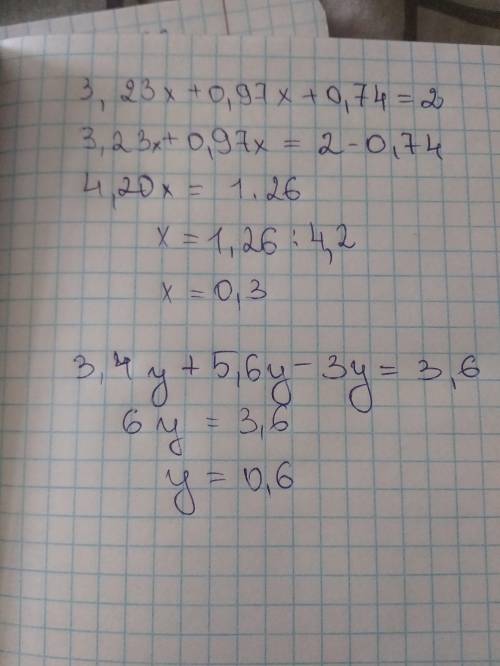 3,23x+0,97x+0,74=2
3,23x+0,97x = 2-0,74
4,20x = 1.26
x=1,26:4,2
x=0,3
3,4y+5,6y-3y=3,6
6y=3,6
y=0,6